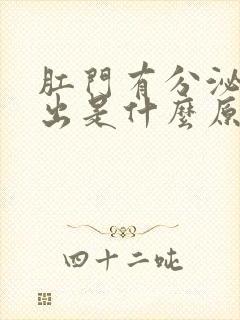 肛門有分泌
出是什麼原
四十二吨